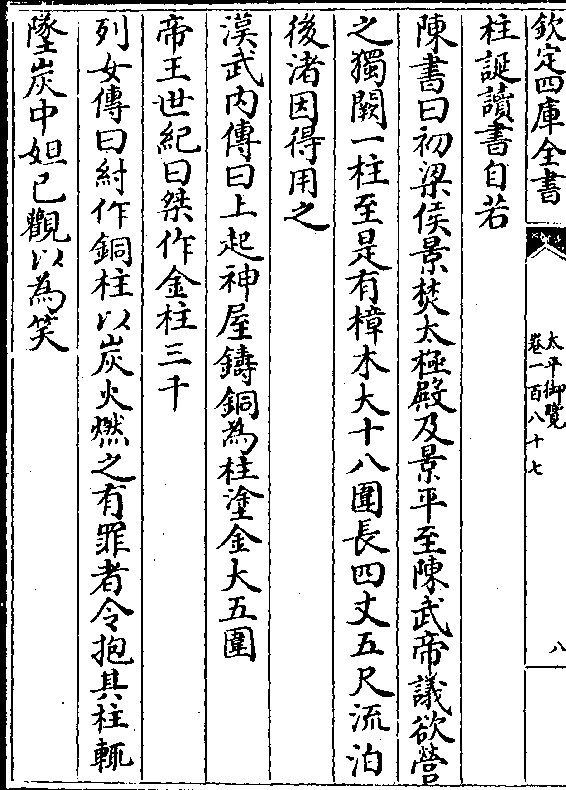 欽定四庫全書
太平御覽
卷一百八十七
八
柱誕讀書自若
陳書曰初梁侯景焚太極殿及景平至陳武帝議欲營
之獨闕一柱至是有樟木大十八圍長四丈五尺流泊
後渚因得用之
漢武内傳曰上起神屋鑄銅為柱塗金大五圍
帝王世紀曰桀作金柱三千
列女傳曰紂作銅柱以炭火燃之有罪者令抱其柱輒
墜炭中妲己觀以為笑